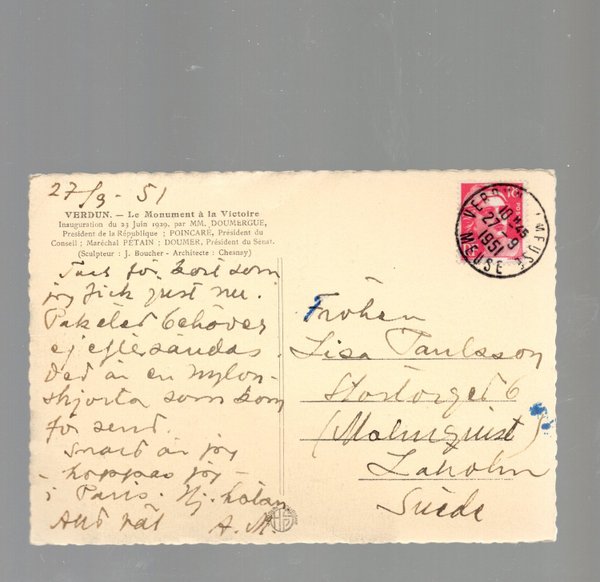 27/9-51
VERDUN. — Le Monument à la Victoire
Inauguration du 23 Juin 1929, par MM. DOUMERGUE,
Président de la République ; POINCARÉ, Président du
Conseil ; Maréchal PÉTAIN ; DOUMER, Président du Sénat.
(Sculpteur : J. Boucher - Architecte : Chesnay)
Tack för kort som
jag fick just nu.
Paketet behöver
ej eftersändas.
Det är en nylon-
skjorta som kom
för sent.
Snart är jag
- hoppas jag -
i Paris. Hj. hälsn
Allt väl
A. M.
VERDUN
10 H45
27-9
1951
MEUSE
Fröken
Lisa Paulsson
Stortorget 6
(Malmquist)
Laholm
Suède